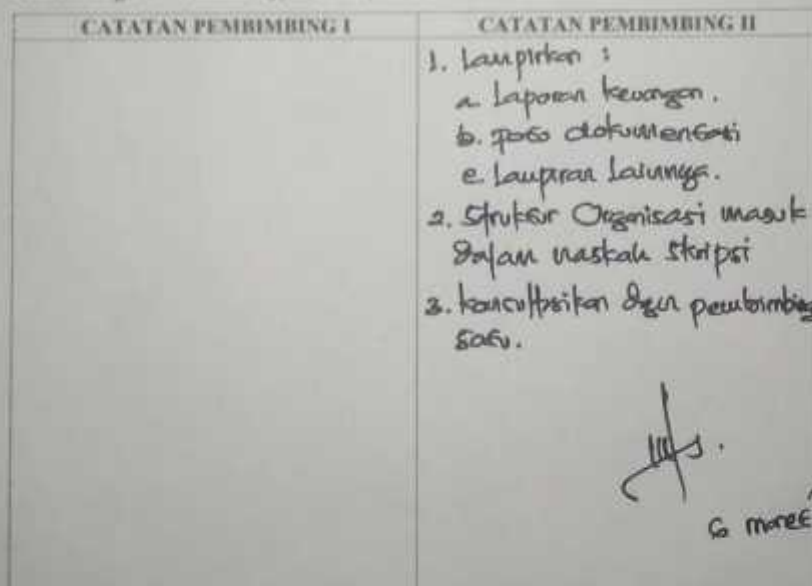 CATATAN PEMBIMBING I
CATATAN PEMBIMBING II
1. Lampirkan :
a. Laporan keuangan.
b. Foto dokumentasi
c. Lampiran Lainnya.
2. Struktur Organisasi masuk
dalam naskah skripsi
3. konsultasikan dgn pembimbing
satu.
6 maret